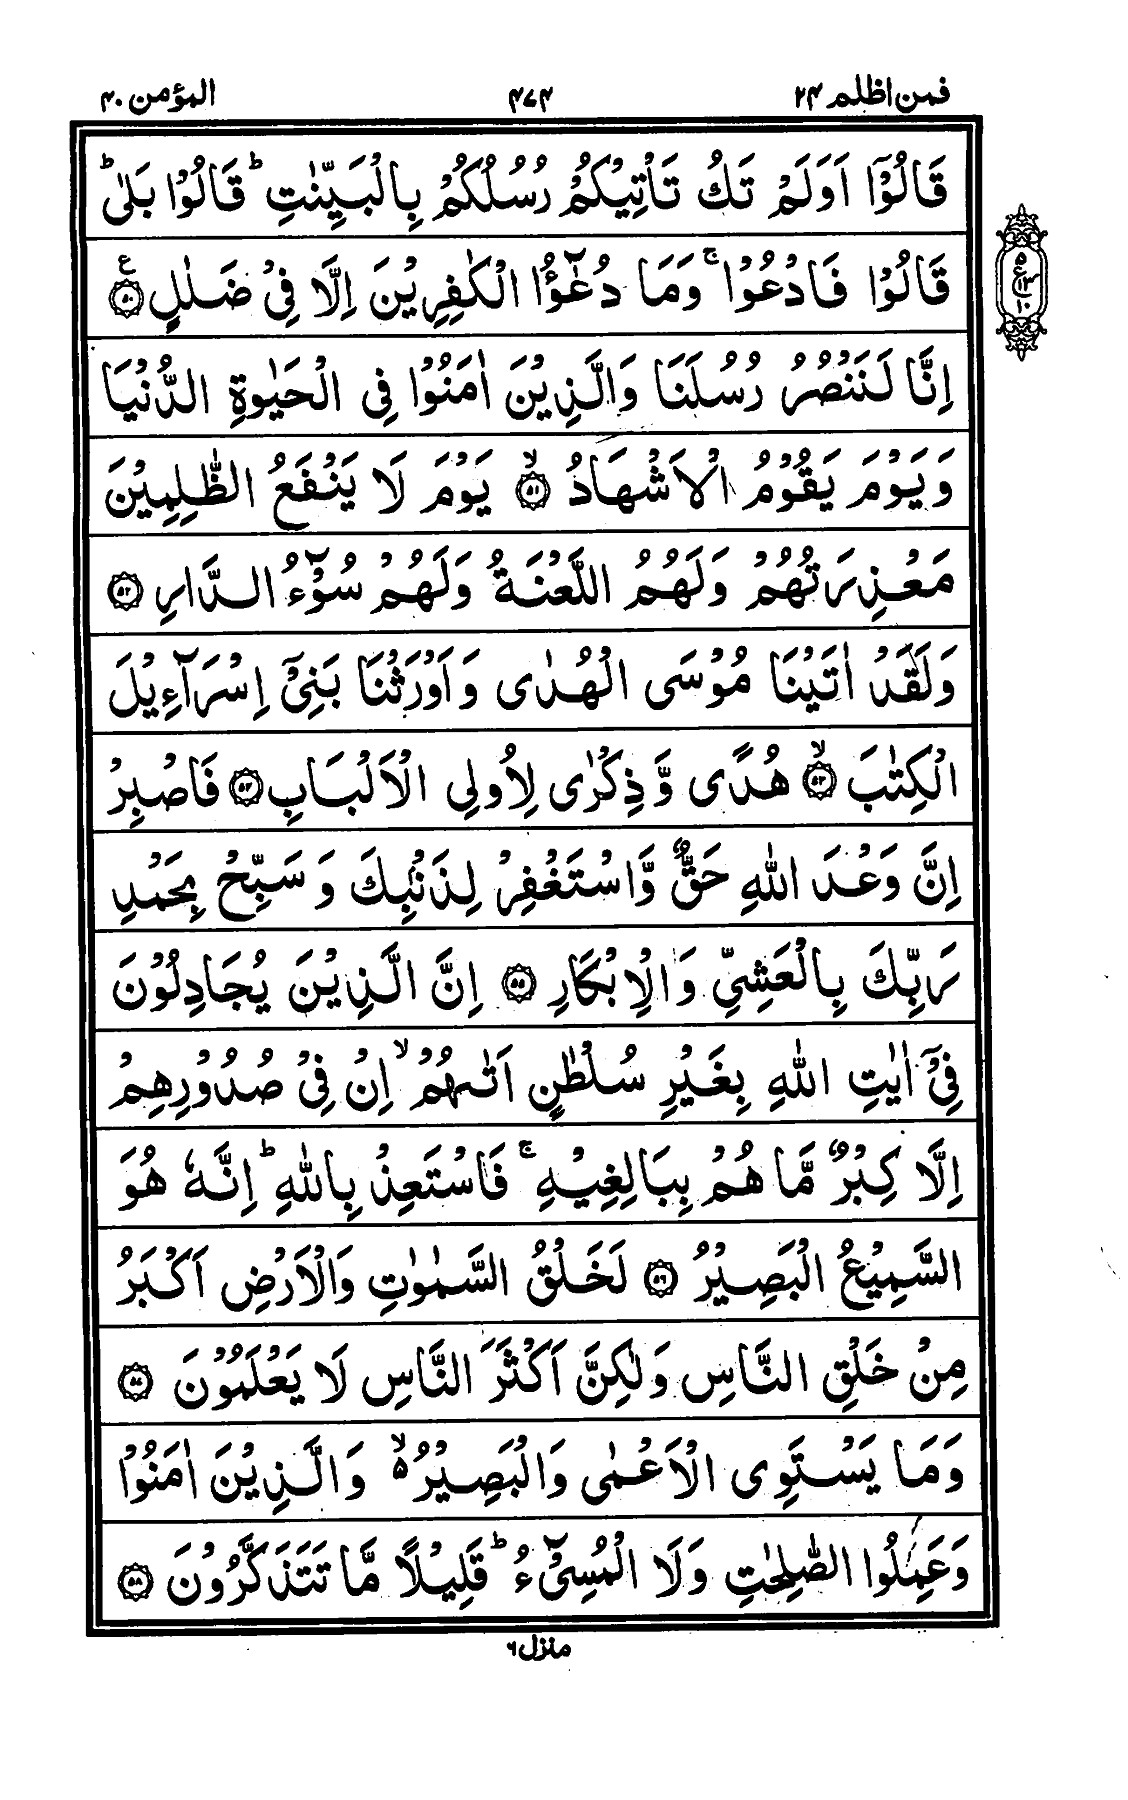 فمن اظلم ۲۴
۴۷۴
المؤمن ۴۰
قَالُوْۤا اَوَلَمْ تَكُ تَاْتِيْكُمْ رُسُلُكُمْ بِالْبَيِّنٰتِ ؕ قَالُوْا بَلٰى ؕ
قَالُوْا فَادْعُوْا ۚ وَمَا دُعٰٓؤُا الْكٰفِرِيْنَ اِلَّا فِيْ ضَلٰلٍ ﴿۵۰﴾ ع
اِنَّا لَنَنْصُرُ رُسُلَنَا وَالَّذِيْنَ اٰمَنُوْا فِى الْحَيٰوةِ الدُّنْيَا
وَيَوْمَ يَقُوْمُ الْاَشْهَادُ ۙ﴿۵۱﴾ يَوْمَ لَا يَنْفَعُ الظّٰلِمِيْنَ
مَعْذِرَتُهُمْ وَلَهُمُ اللَّعْنَةُ وَلَهُمْ سُوْٓءُ الدَّارِ ﴿۵۲﴾
وَلَقَدْ اٰتَيْنَا مُوْسَى الْهُدٰى وَاَوْرَثْنَا بَنِيْۤ اِسْرَآءِيْلَ
الْكِتٰبَ ۙ﴿۵۳﴾ هُدًى وَّذِكْرٰى لِاُولِى الْاَلْبَابِ ﴿۵۴﴾ فَاصْبِرْ
اِنَّ وَعْدَ اللّٰهِ حَقٌّ وَّاسْتَغْفِرْ لِذَنْۢبِكَ وَسَبِّحْ بِحَمْدِ
رَبِّكَ بِالْعَشِيِّ وَالْاِبْكَارِ ﴿۵۵﴾ اِنَّ الَّذِيْنَ يُجَادِلُوْنَ
فِيْۤ اٰيٰتِ اللّٰهِ بِغَيْرِ سُلْطٰنٍ اَتٰىهُمْ ۙ اِنْ فِيْ صُدُوْرِهِمْ
اِلَّا كِبْرٌ مَّا هُمْ بِبَالِغِيْهِ ۚ فَاسْتَعِذْ بِاللّٰهِ ؕ اِنَّهٗ هُوَ
السَّمِيْعُ الْبَصِيْرُ ﴿۵۶﴾ لَخَلْقُ السَّمٰوٰتِ وَالْاَرْضِ اَكْبَرُ
مِنْ خَلْقِ النَّاسِ وَلٰكِنَّ اَكْثَرَ النَّاسِ لَا يَعْلَمُوْنَ ﴿۵۷﴾
وَمَا يَسْتَوِى الْاَعْمٰى وَالْبَصِيْرُ ۙ۬ وَالَّذِيْنَ اٰمَنُوْا
وَعَمِلُوا الصّٰلِحٰتِ وَلَا الْمُسِيْٓءُ ؕ قَلِيْلًا مَّا تَتَذَكَّرُوْنَ ﴿۵۸﴾
منزل ۶